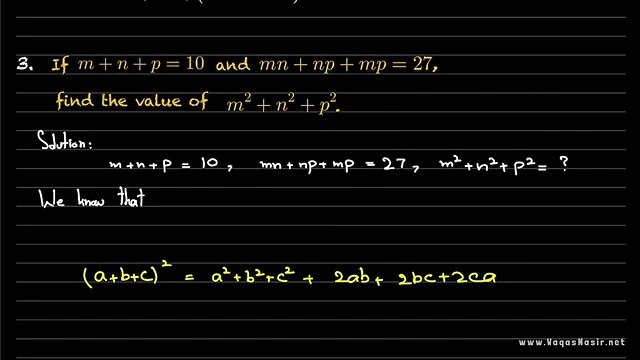 3. If m + n + p = 10 and mn + np + mp = 27,
find the value of m² + n² + p².
Solution:
m+n+p = 10, mn+np+mp = 27, m²+n²+p² = ?
We know that
(a+b+c)² = a²+b²+c² + 2ab+ 2bc+2ca
www.WaqasNasir.net